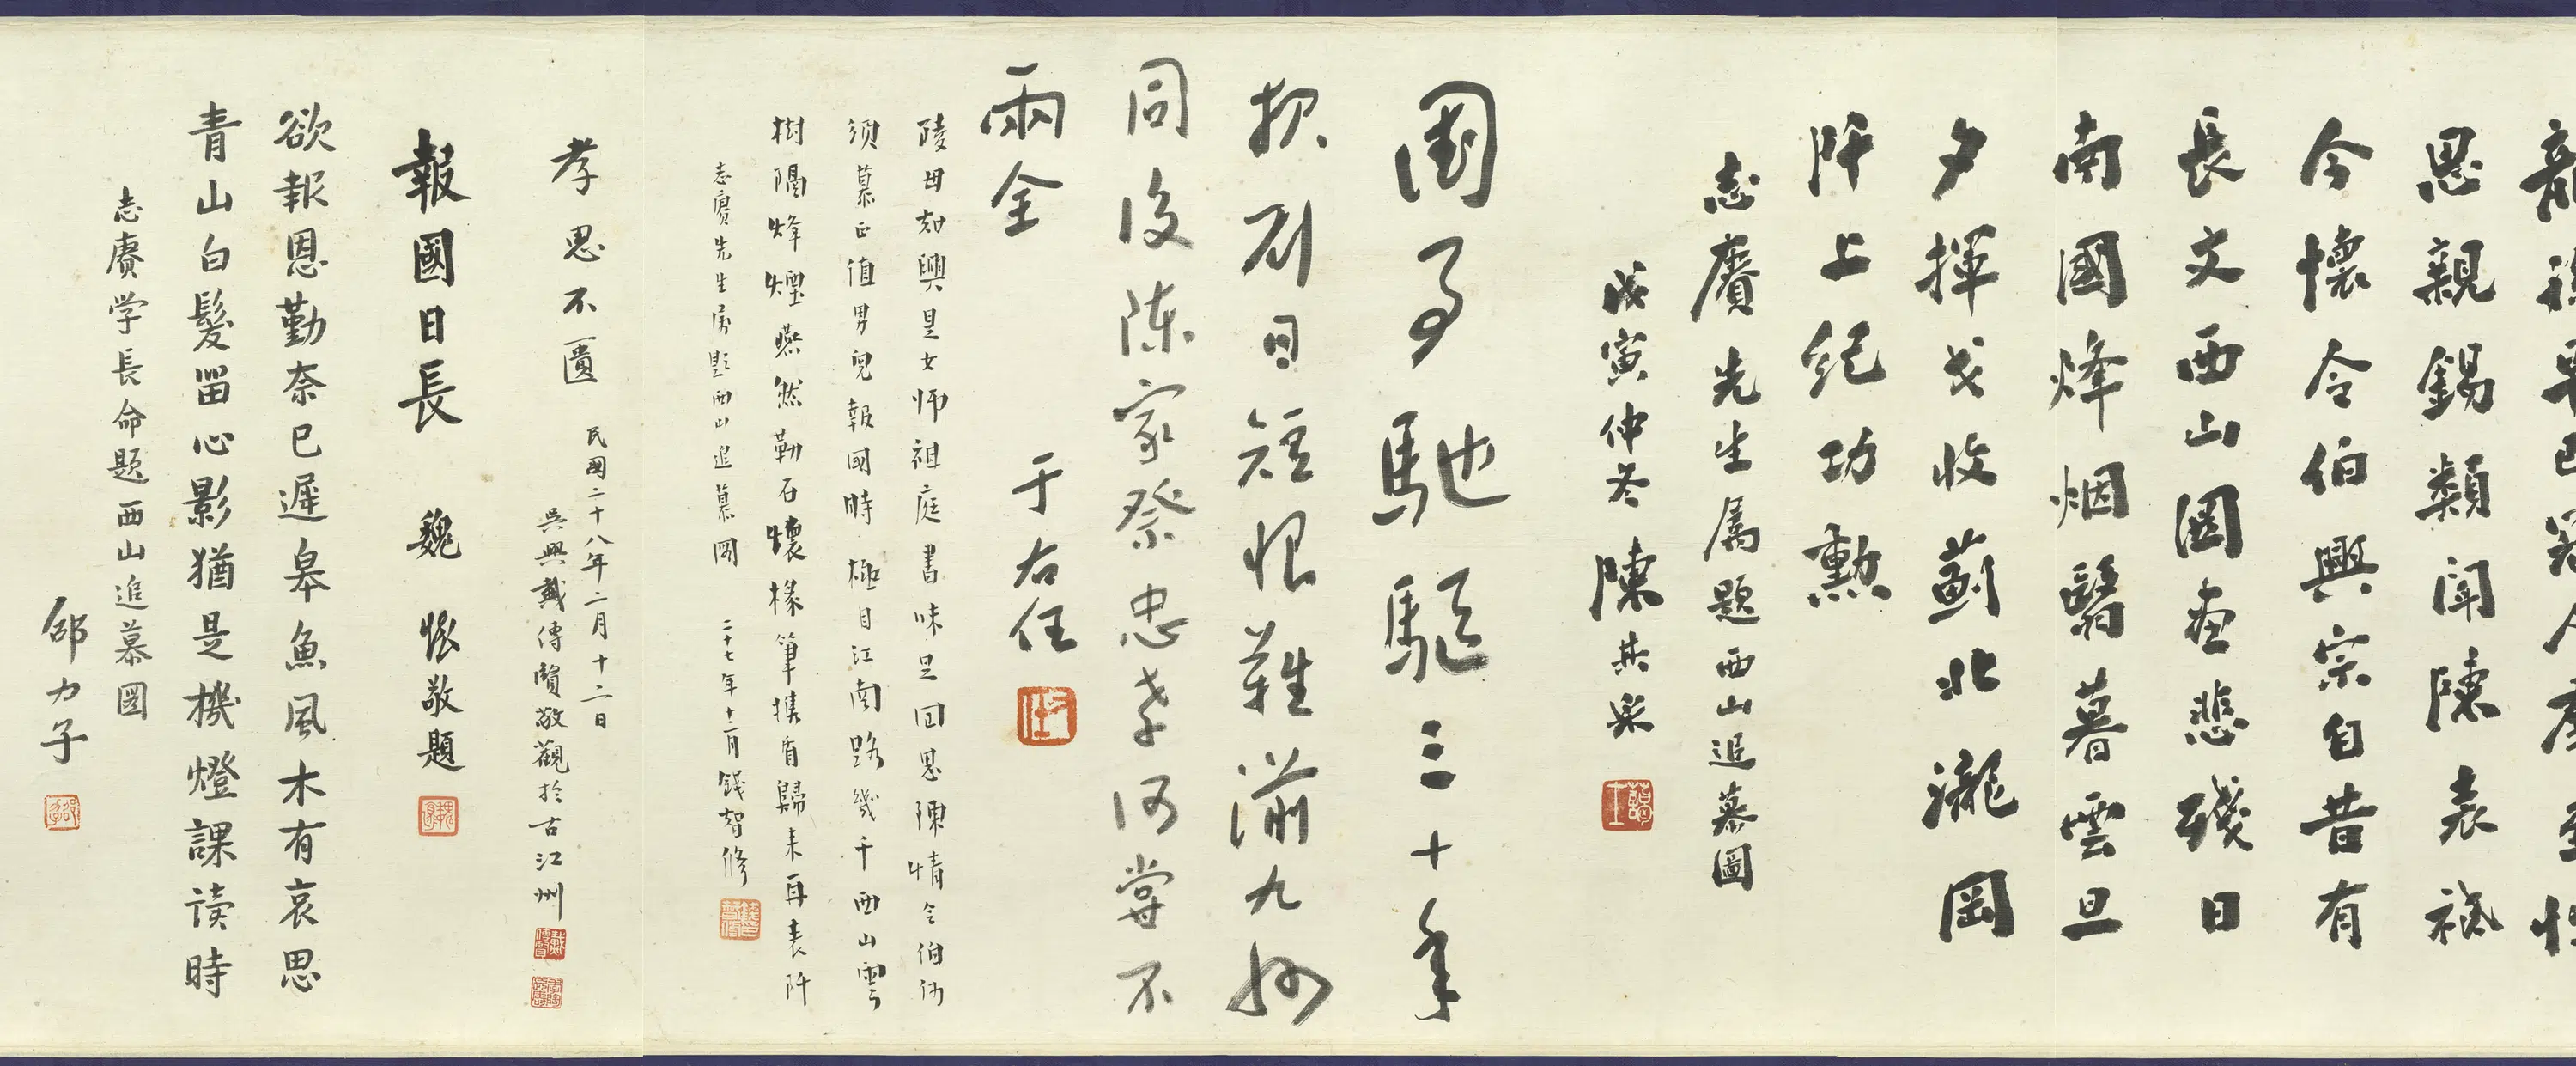 思親錫類聞陳表祇
今懷令伯興宗自昔有
長文西山圖畫悲殘日
南國烽烟翳暮雲旦
夕揮戈收薊北瀧岡
阡上紀功勲
志賡先生属題西山追慕圖
戊寅仲冬 陳其采
國事馳驅三十年
報劉日短恨難瀰九州
同後陳家祭忠孝何嘗不
兩全
于右任
陵母知興是女師祖庭書味足回思陳情令伯仍
須慕正值男兒報國時 極目江南路幾千西山雲
樹隔烽煙燕然勒石懷椽筆携盾歸来再表阡
志賡先生属題西山追慕圖 二十七年十二月 錢智修
孝思不匱
民國二十八年二月十二日
吳興戴傳賢敬觀於古江州
報國日長 魏懷敬題
欲報恩勤奈已遲皋魚風木有哀思
青山白髮留心影猶是機燈課读時
志賡学長命題西山追慕圖
邵力子